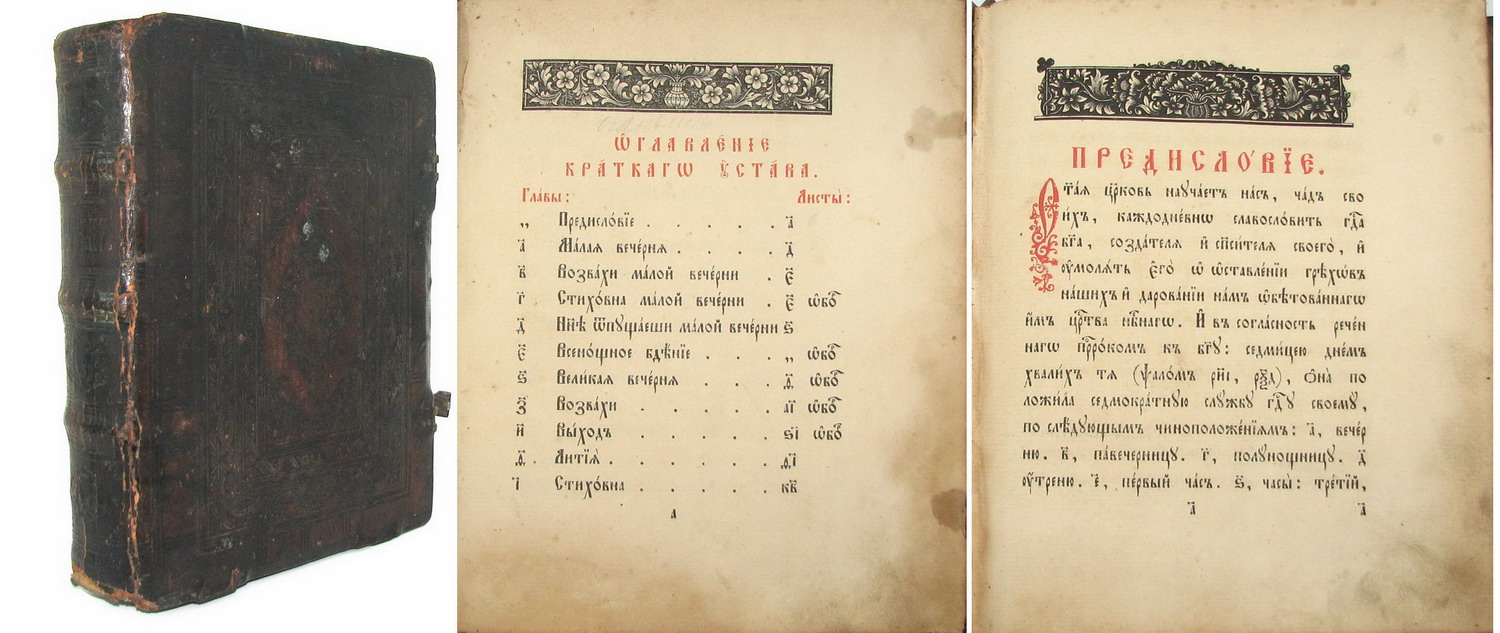 Ѡ҆ГЛАВЛЕ́НЇЕ
КРА́ТКАГѠ ОУ҆СТА́ВА.
Гла́вы: Листы̀:
„ Предисло́вїе . . . . . а҃
а҃ Ма́лая вече́рня . . . . д҃
в҃ Возва́хи ма́лой вече́рни . є҃
г҃ Стихо́вна ма́лой вече́рни . є҃ ѡ҆бо́
д҃ Нн҃ѣ ѿпуща́еши ма́лой вече́рни ѕ҃
є҃ Всено́щное бдѣ́нїе . . . „ ѡ҆бо́
ѕ҃ Вели́кая вече́рня . . . ѳ҃ ѡ҆бо́
з҃ Возва́хи . . . . . аі҃ ѡ҆бо́
и҃ Вы́ходъ . . . . . ѕі҃ ѡ҆бо́
ѳ҃ . Литїѧ̀ . . . . . . ѳі҃
і҃ Стихо́вна . . . . . кв҃
а
ПРЕДИСЛО́ВЇЕ.
С҃та́я цр҃ковь науча́етъ на́съ, ча́дъ сво
и́хъ, каждодне́внѡ славосло́вить гд҇а
бг҃а, созда́теля и҆ сп҃си́теля своего̀, и҆
оу҆моля́ть є҆го̀ ѡ҆ ѡ҆ставле́нїи грѣхѡ́въ
на́шихъ и҆ дарова́нїи на́мъ ѡ҆бѣтова́ннагѡ
и҆́мъ црⷭ҇тва нбⷭ҇нагѡ. И҆ въ согла́сность рече́н
нагѡ прⷪ҇ро́комъ къ бг҃у: седми́цею дне́мъ
хвали́хъ тя (ѱало́мъ риі҃, рѯд҃), ѻ҆на̀ по
ложи́ла седмокра́тную слу́жбу гдⷭ҇у своему̀,
по слѣ́дующымъ чиноположе́нїямъ: а҃, вече́р
ню. в҃, па́вечерницу. г҃, полу́нощницу. д҃
оу҆́треню. є҃, пе́рвый ча́съ. ѕ҃, часы̀: тре́тїй,
а҃ а҃